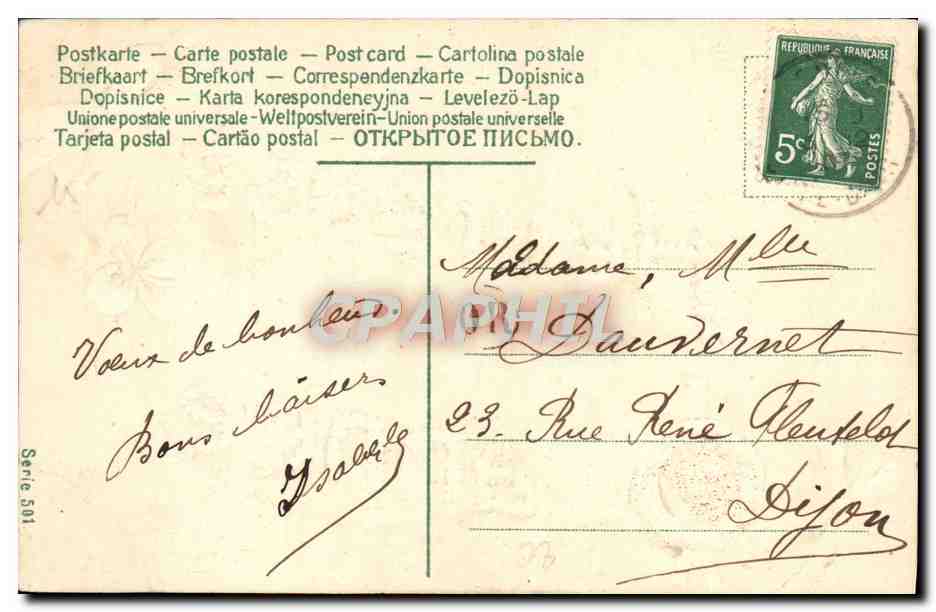 Postkarte – Carte postale – Post card – Cartolina postale
Briefkaart – Brefkort – Correspondenzkarte – Dopisnica
Dopisnice – Karta korespondencyjna – Levelező-Lap
Unione postale universale – Weltpostverein – Union postale universelle
Tarjeta postal – Cartão postal – ОТКРЫТОЕ ПИСЬМО.
REPUBLIQUE FRANÇAISE
5c
POSTES
Vœux de bonheur.
Bons baisers
Madame, Mlle
Dauvernet
23, Rue René
Dijon
CPAPHIL
Serie 501